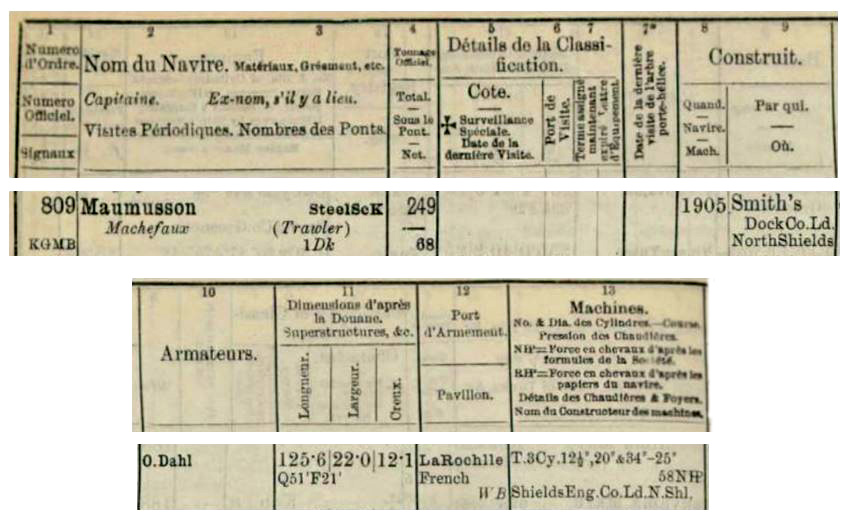 1 2 3 4 5 6 7 7* 8 9
Numero d'Ordre.
Numero Officiel.
Signaux
Nom du Navire. Matériaux, Gréement, etc.
Capitaine. Ex-nom, s'il y a lieu.
Visites Périodiques. Nombres des Ponts.
Tonnage Officiel.
Total.
Sous le Pont.
Net.
Détails de la Classi-
fication.
Cote.
✠ Surveillance
Spéciale.
Date de la
dernière Visite.
Port de
Visite.
Terme assigné
maintenant
expiré Lettre
d'Equipement.
Date de la dernière
visite de l'arbre
porte-hélice.
Construit.
Quand.
Navire.
Mach.
Par qui.
Où.
809 Maumusson SteelScK 249 1905 Smith's
Machefaux (Trawler) — DockCo.Ld.
KGMB 1Dk 68 NorthShields
10 11 12 13
Armateurs.
Dimensions d'après
la Douane.
Superstructures, &c.
Longueur.
Largeur.
Creux.
Port
d'Armement.
Pavillon.
Machines.
No. & Dia. des Cylindres.—Course.
Pression des Chaudières.
NHP=Force en chevaux d'après les
formules de la Société.
RHP=Force en chevaux d'après les
papiers du navire.
Détails des Chaudières & Foyers.
Nom du Constructeur des machines.
O.Dahl 125·6|22·0|12·1 LaRochlle T.3Cy.12½",20"&34"–25"
Q51'F21' French 58NHP
WB ShieldsEng.Co.Ld.N.Shl.